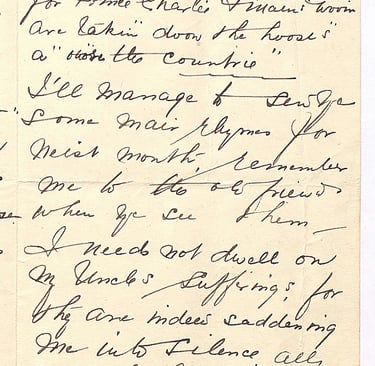 for Prince Charlie & mains
are takin' doon the hooses"
a' "ower the countrie"
I'll manage to sen' ye
some mair rhymes for
neist month, remember
me to the old friends
when ye see them —
I needs not dwell on
my Uncle's sufferings, for
they are indeed saddening
me into silence all